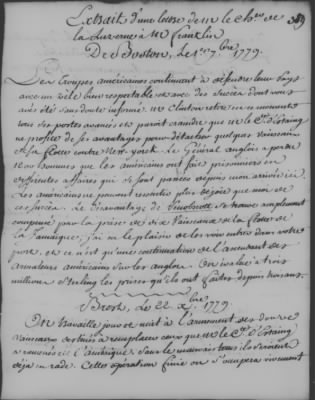 Extrait d'une lettre de M le Ch.er de
la Luzerne à Mr Franklin
De Boston, Le 1.er 7.bre 1779.
Les Troupes américaines continuent à défendre leur Pays
avec un zèle bien respectable et avec des succès dont vous
avés été sans doute informé. Mr Clinton retire en ce moment
tous ses postes avancés et paroit craindre que M le C.te d'Estaing
ne profite de ses avantages pour détacher quelques vaisseaux
de sa flotte contre New-york. Le Général anglois a perdu
hommes que les américains ont fait prisonniers en
différentes affaires qui se sont passées depuis mon arrivée ici.
Les américains ne peuvent ressentir plus de joie que moi de
ces succès. Le désavantage de Penobscott se trouve amplement
compensé par la prise de dix Vaisseaux de la flotte de
la Jamaïque; j'ai eu le plaisir de les voir entrer dans notre
port, et ce n'est qu'une continuation de l'ascendant des
armateurs américains sur les anglois. On évalue à trois
millions Sterling les prises qu'ils ont faites depuis trois ans.
Brest, Le 22 X.bre 1779
On travaille jour et nuit à l'armement des douze
vaisseaux destinés à remplacer ceux que M le C.te d'Estaing
a ramenés de l'amérique. Dans le mauvais tems ils
déja en rade. Cette opération finie on s'occupera vivement